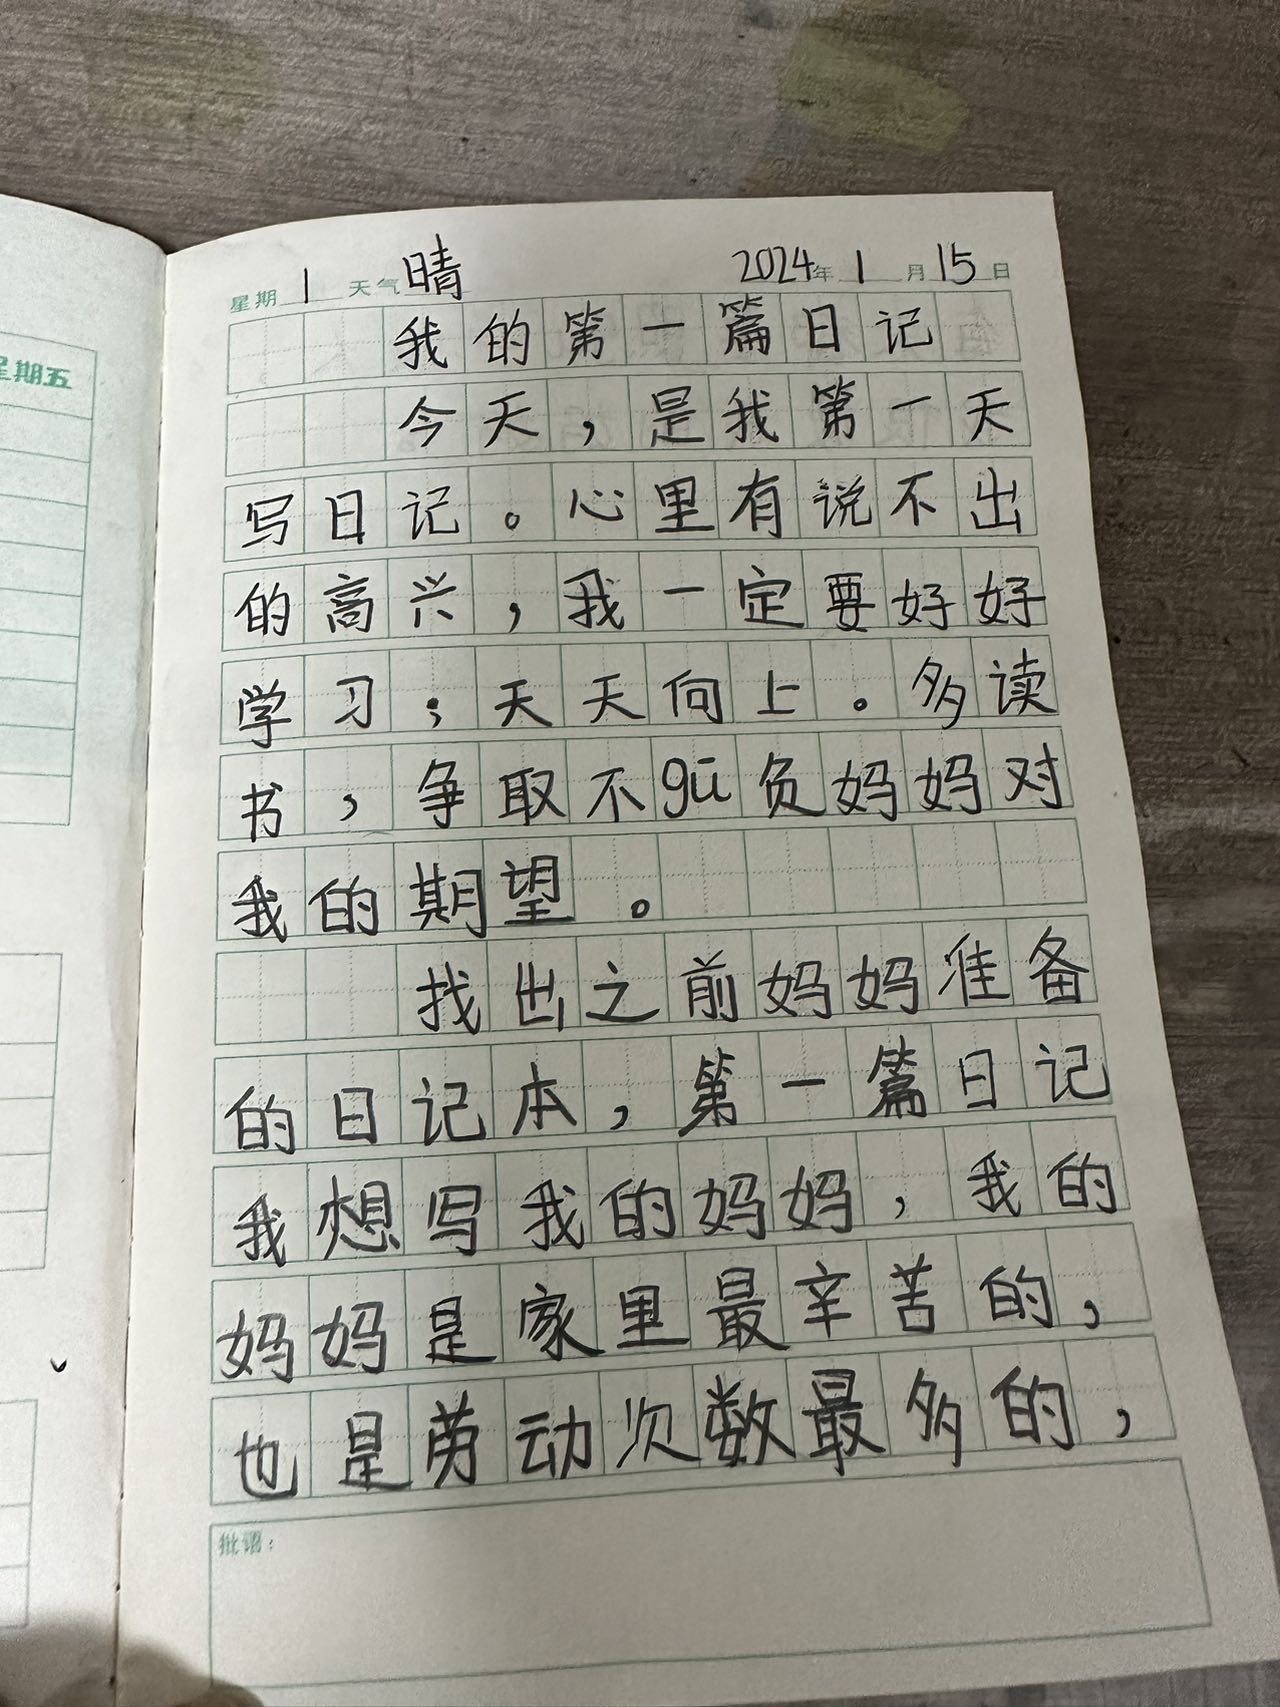 星期五
星期 1 天气 晴 2024年 1 月 15 日
我的第一篇日记
今天，是我第一天
写日记。心里有说不出
的高兴，我一定要好好
学习；天天向上。多读
书，争取不gū负妈妈对
我的期望。
找出之前妈妈准备
的日记本，第一篇日记
我想写我的妈妈，我的
妈妈是家里最辛苦的，
也是劳动次数最多的，
批语：